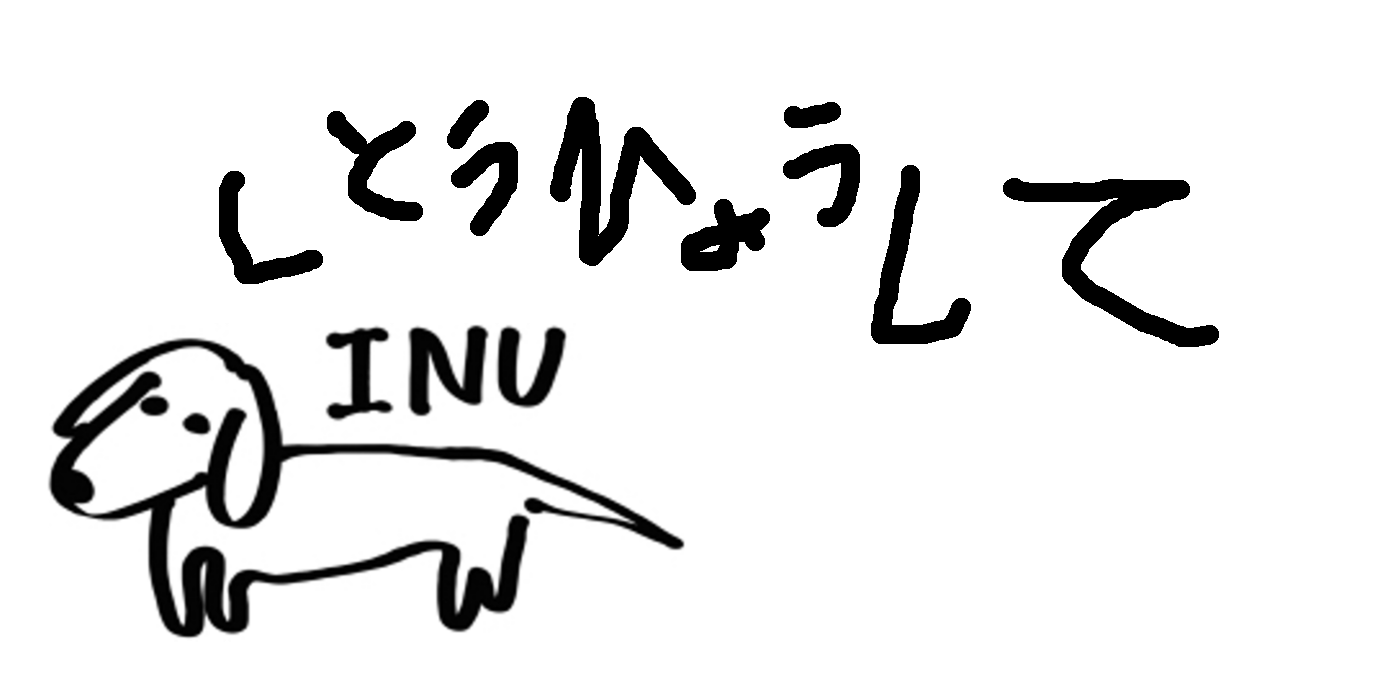 しとうひょうして
INU